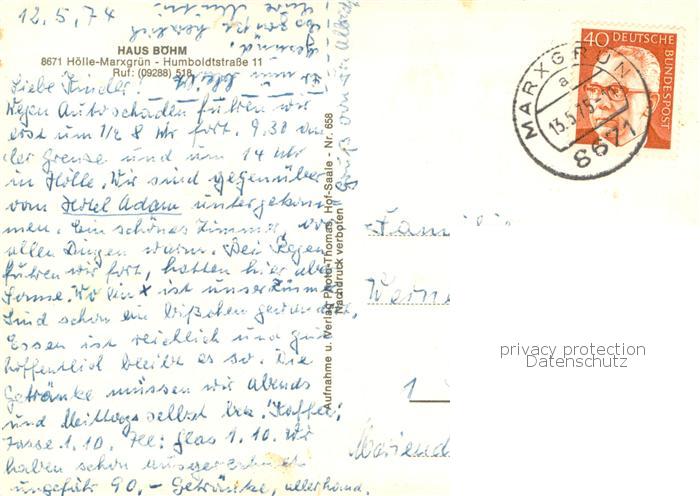 12.5.74
HAUS BÖHM
8671 Hölle-Marxgrün - Humboldtstraße 11
Ruf: (09288) 518
Liebe Kinder!
Wegen Autoschaden fuhren wir
erst um 1/2 8 Uhr fort. 9.30 an
der Grenze und um 14 Uhr
in Hölle. Wir sind gegenüber
vom Hotel Adam untergekom
men. Ein schönes Zimmer, vor
allen Dingen warm. Bei Regen
fuhren wir fort, hatten hier aber
Sonne. Wo ein x ist unser Zimmer
Sind schon ein bißchen gewandert.
Essen ist reichlich und gut
hoffentlich bleibt es so. Die
Getränke müssen wir abends
und Mittags selbst bez. Kaffee:
Tasse 1.10. Tee: Glas 1.10. Wir
haben schon ausgerechnet
ungefähr 90,- Getränke, allerhand.
Aufnahme u. Verlag Photo-Thomas, Hof-Saale - Nr. 658
Nachdruck verboten
40 DEUTSCHE BUNDESPOST
MARXGRÜN
a
13.5.75-11
8671
Famili
Werne
1
Mariend
privacy protection
Datenschutz